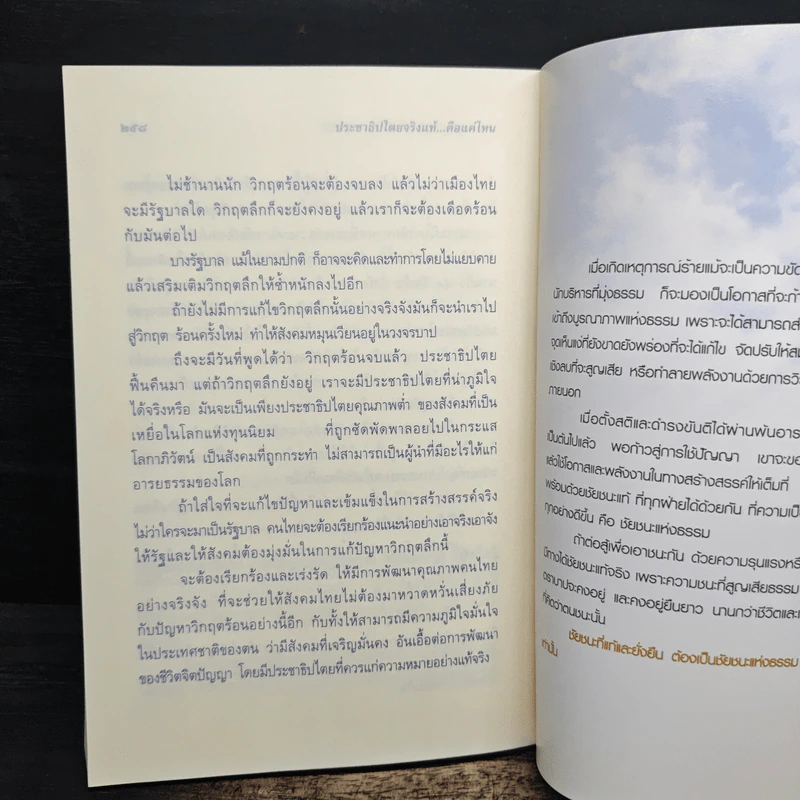 ๒๕๘
ประชาธิปไตยจริงแท้...คือแค่ไหน
ไม่ช้านานนัก วิกฤตร้อนจะต้องจบลง แล้วไม่ว่าเมืองไทย
จะมีรัฐบาลใด วิกฤตลึกก็จะยังคงอยู่ แล้วเราก็จะต้องเดือดร้อน
กับมันต่อไป
บางรัฐบาล แม้ในยามปกติ ก็อาจจะคิดและทำการโดยไม่แยบคาย
แล้วเสริมเติมวิกฤตลึกให้ซ้ำหนักลงไปอีก
ถ้ายังไม่มีการแก้ไขวิกฤตลึกนั้นอย่างจริงจังมันก็จะนำเราไป
สู่วิกฤต ร้อนครั้งใหม่ ทำให้สังคมหมุนเวียนอยู่ในวงจรบาป
ถึงจะมีวันที่พูดได้ว่า วิกฤตร้อนจบแล้ว ประชาธิปไตย
ฟื้นคืนมา แต่ถ้าวิกฤตลึกยังอยู่ เราจะมีประชาธิปไตยที่น่าภูมิใจ
ได้จริงหรือ มันจะเป็นเพียงประชาธิปไตยคุณภาพต่ำ ของสังคมที่เป็น
เหยื่อในโลกแห่งทุนนิยม ที่ถูกซัดพัดพาลอยไปในกระแส
โลกาภิวัตน์ เป็นสังคมที่ถูกกระทำ ไม่สามารถเป็นผู้นำที่มีอะไรให้แก่
อารยธรรมของโลก
ถ้าใส่ใจที่จะแก้ไขปัญหาและเข้มแข็งในการสร้างสรรค์จริง
ไม่ว่าใครจะมาเป็นรัฐบาล คนไทยจะต้องเรียกร้องแนะนำอย่างเอาจริงเอาจัง
ให้รัฐและให้สังคมต้องมุ่งมั่นในการแก้ปัญหาวิกฤตลึกนี้
จะต้องเรียกร้องและเร่งรัด ให้มีการพัฒนาคุณภาพคนไทย
อย่างจริงจัง ที่จะช่วยให้สังคมไทยไม่ต้องมาหวาดหวั่นเสี่ยงภัย
กับปัญหาวิกฤตร้อนอย่างนี้อีก กับทั้งให้สามารถมีความภูมิใจมั่นใจ
ในประเทศชาติของตน ว่ามีสังคมที่เจริญมั่นคง อันเอื้อต่อการพัฒนา
ของชีวิตจิตปัญญา โดยมีประชาธิปไตยที่ควรแก่ความหมายอย่างแท้จริง
เมื่อเกิดเหตุการณ์ร้ายแม้จะเป็นความขัด
นักบริหารที่มุ่งธรรม ก็จะมองเป็นโอกาสที่จะก้
เข้าถึงบูรณาภาพแห่งธรรม เพราะจะได้สามารถส
จุดเห็นแง่ที่ยังขาดยังพร่องที่จะได้แก้ไข จัดปรับให้ส
เชิงลบที่จะสูญเสีย หรือทำลายพลังงานด้วยการวิ
ภายนอก
เมื่อตั้งสติและดำรงขันติได้ผ่านพ้นอาร
เป็นต้นไปแล้ว พอก้าวสู่การใช้ปัญญา เขาจะข
แล้วใช้โอกาสและพลังงานในทางสร้างสรรค์ให้เต็มที่
พร้อมด้วยชัยชนะแท้ ที่ทุกฝ่ายได้ด้วยกัน ที่ความเป็
ทุกอย่างดีขึ้น คือ ชัยชนะแห่งธรรม
ถ้าต่อสู้เพื่อเอาชนะกัน ด้วยความรุนแรงหรื
มีทางได้ชัยชนะแท้จริง เพราะความชนะที่สูญเสียธรรม
ตราบาปจะคงอยู่ และคงอยู่ยืนยาว นานกว่าชีวิตและ
ที่คิดว่าตนชนะนั้น
ชัยชนะที่แท้และยั่งยืน ต้องเป็นชัยชนะแห่งธรรม
เท่านั้น